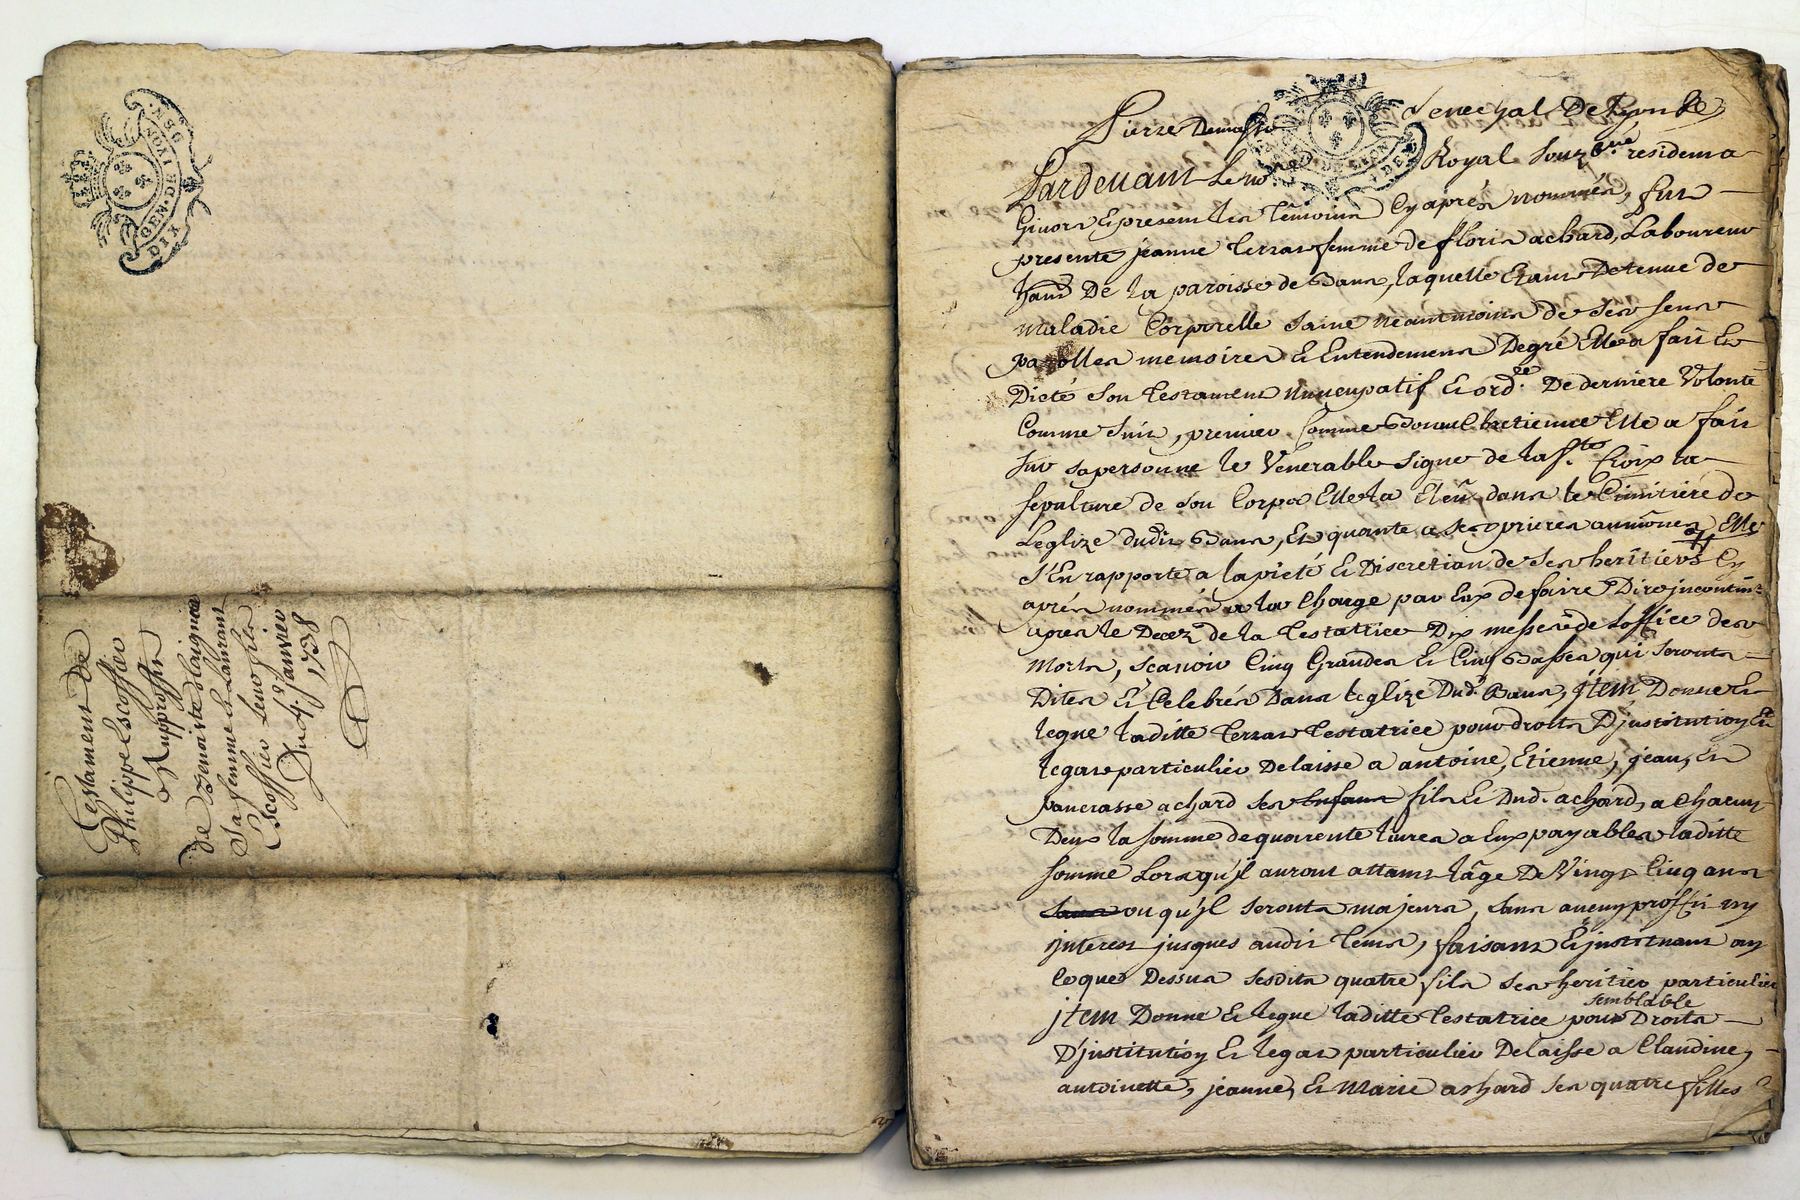 GEN. DE LYON
DIX DEN
Testament de
Philippe Escoffier
Et Aupproffit
de Benoiste Staignier
Sa femme et Laurant
Escoffier Leur fils
Du 4e. Janvier
1738
Pierre Demasso Senechal De Lyon
Pardevant Le no.re Royal souz.né resident a
Givors Et present les témoins Cy après nommés, fut
presente jeanne Terras femme de floris achard, Laboureur
hant De la paroisse de Bans, laquelle Etant Detenue de
maladie Corporelle saine neantmoins de Ses sens
parolles memoires Et Entendement Degré Elle a fait Et
Dicté Son Testament nuncupatif Et ord.ce De derniere Volonté
Comme Suit, premier Comme Bonne Chretienne Elle a fait
sur sa personne le Venerable Signe de la Ste Croix la
sepulture de Son Corps Elle la Eleü dans le Cimitiere de
Leglize dudit Bans, Et quante a Ses prieres aumônes Elle
s'En rapporte a la pieté Et Discretion de Ses heritiers Cy
après nommés a la Charge par Eux de faire Dire jncontin.t
apres le Decez de la Testatrice Dix messes de Loffice des
morts, scavoir Cinq Grandes Et Cinq Basses qui seronts
Dites Et Celebrés Dans leglize Dud. Bans, jtem Donne Et
legue laditte Terras Testatrice pour droits D'justitutioy Et
legat particulier Delaisse a antoine, Etienne, jean, Et
pancrasse achard ses Enfans fils Et Dud. achard, a Chacun
Deux la somme de quarente livres a Eux payables laditte
somme Lors qu'jl auront attains lâge De Vingt Cinq ans
ou qu'jl seronts majeurs, sans aucuy proffit ny
jnterest jusques audit tems, faisant Et justituant ay
ce que Dessus sesdits quatre fils ses heritier particulier
semblable
jtem Donne Et legue laditte Testatrice pour Droits
D'justitutioy Et legat particulier Delaisse a Claudine,
antoinette, jeanne, Et Marie achard Ses quatre filles